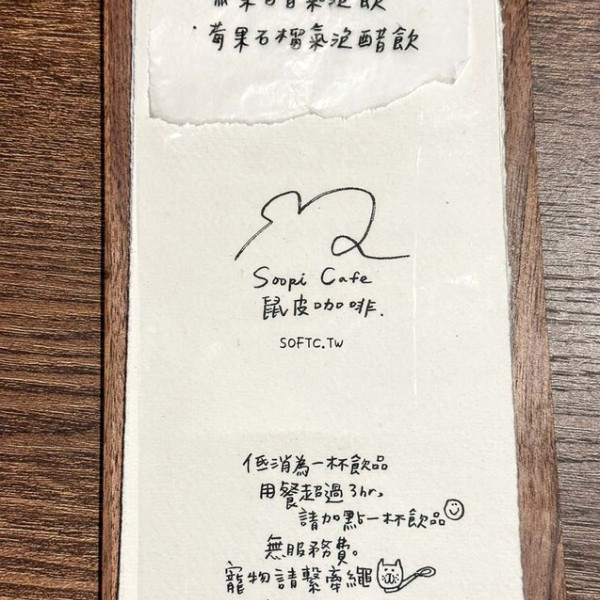 氣泡飲
·莓果石榴氣泡醋飲
Soopi Cafe
鼠皮咖啡.
SOFTC.TW
低消為一杯飲品
用餐超過3hr,
請加點一杯飲品
無服務費。
寵物請繫牽繩